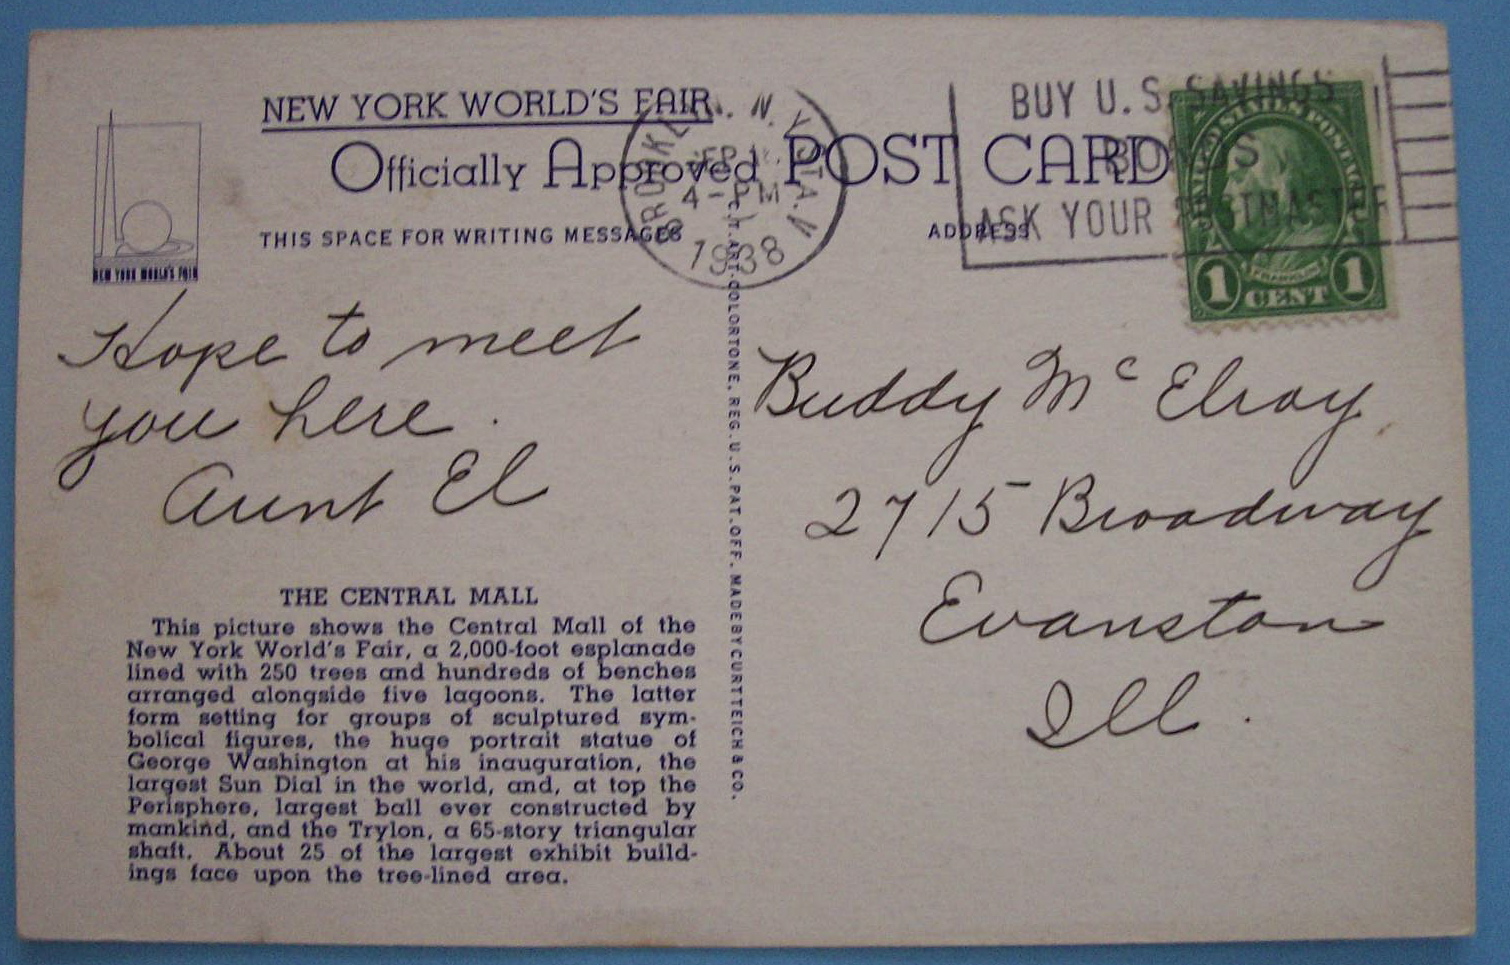 NEW YORK WORLD'S FAIR
Officially Approved POST CARD
THIS SPACE FOR WRITING MESSAGES
ADDRESS
NEW YORK WORLD'S FAIR
BROOKLYN. N. Y. STA. V
4-PM
1938
BUY U.S. SAVINGS
BONDS
ASK YOUR POSTMASTER
UNITED STATES POSTAGE
FRANKLIN
1 CENT 1
Hope to meet
you here.
Aunt El
Buddy McElroy
2715 Broadway
Evanston
Ill.
C.T. ART-COLORTONE, REG. U.S. PAT. OFF. MADE BY CURT TEICH & CO.
THE CENTRAL MALL
This picture shows the Central Mall of the
New York World's Fair, a 2,000-foot esplanade
lined with 250 trees and hundreds of benches
arranged alongside five lagoons. The latter
form setting for groups of sculptured sym-
bolical figures, the huge portrait statue of
George Washington at his inauguration, the
largest Sun Dial in the world, and, at top the
Perisphere, largest ball ever constructed by
mankind, and the Trylon, a 65-story triangular
shaft. About 25 of the largest exhibit build-
ings face upon the tree-lined area.